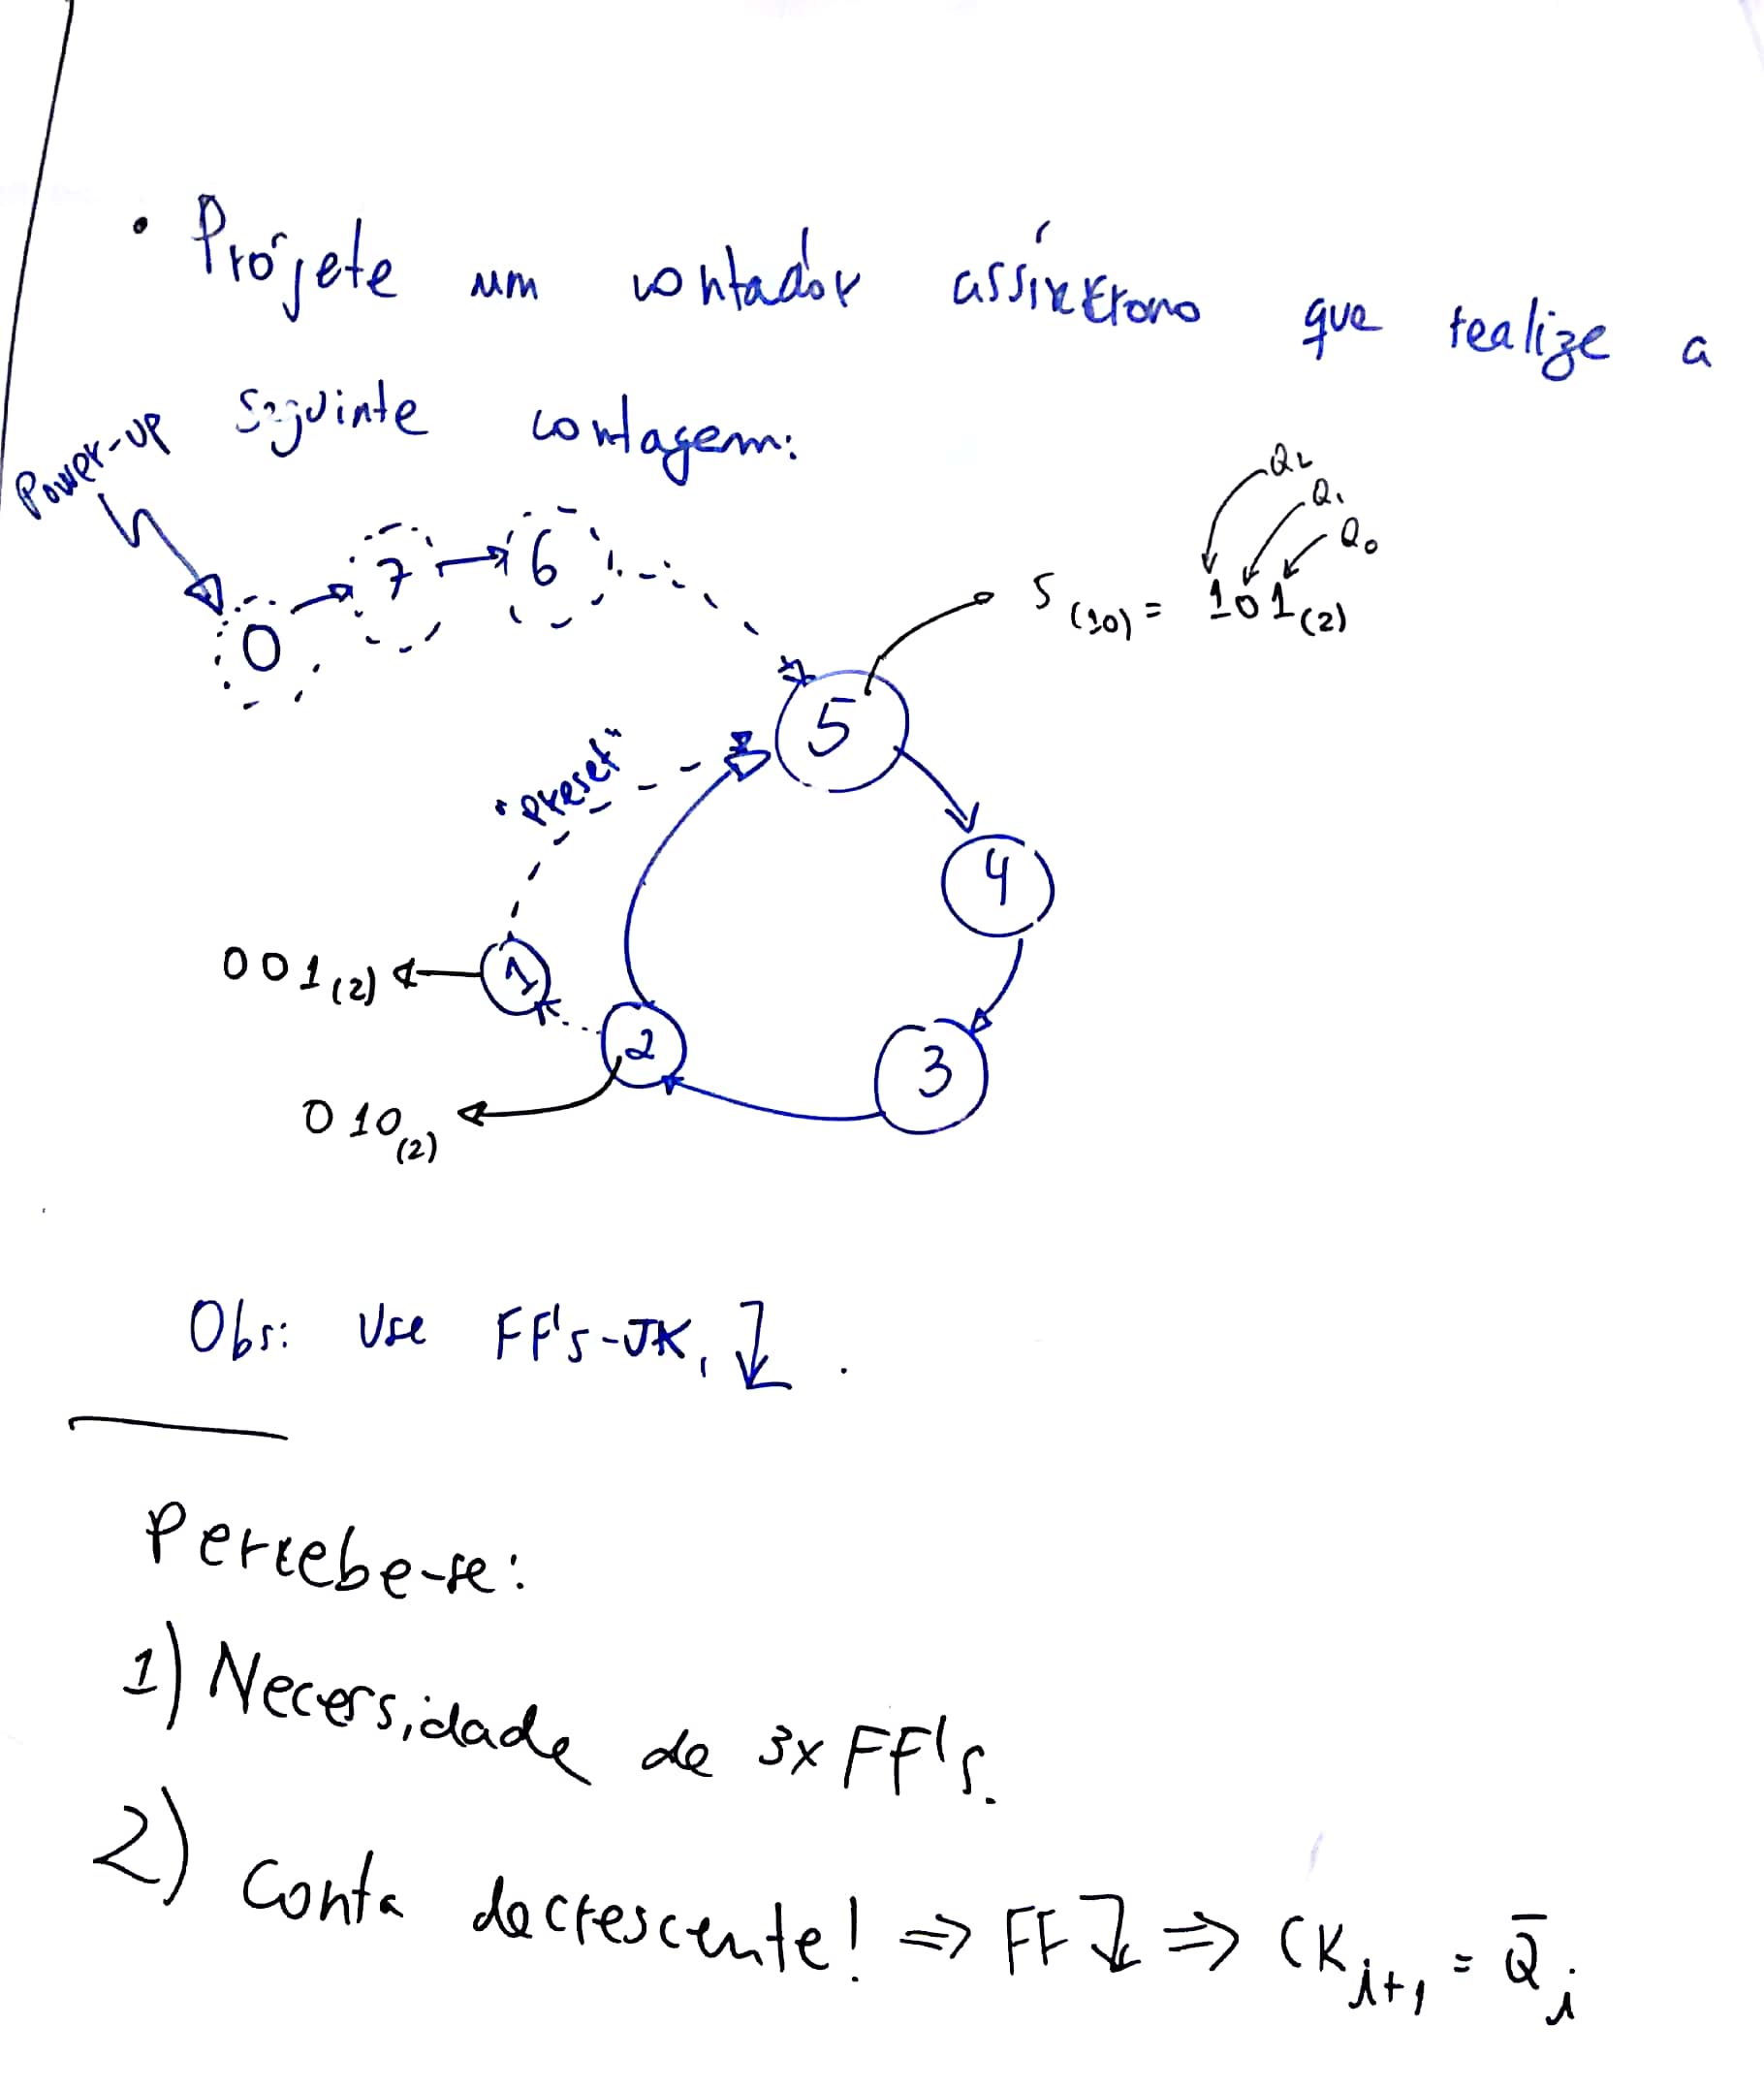 • Projete um contador assíncrono que realize a
seguinte contagem:
Power-up
Q2
Q1
Q0
0
7
6
5(10) = 101(2)
5
"preset"
4
001(2)
1
2
3
010(2)
Obs: Use FF's-JK, ↓.
Percebe-se:
1) Necessidade de 3x FF's.
2) Conta decrescente! ⇒ FF ↓ ⇒ CK i+1 = Q̄ i